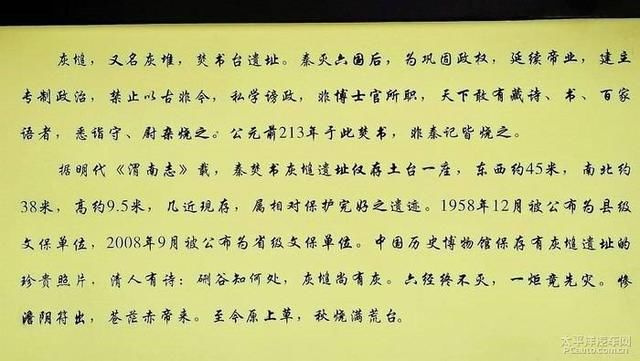 灰堆，又名灰堆，焚书台遗址。秦灭六国后，为巩固政权，延续帝业，建立
专制政治，禁止以古非今，私学谤政，非博士官所职，天下敢有藏诗、书、百家
语者，悉诣守、尉杂烧之。公元前213年于此焚书，非秦记皆烧之。
据明代《渭南志》载，秦焚书灰堆遗址仅存土台一座，东西约45米，南北约
38米，高约9.5米，几近现存，属相对保护完好之遗迹。1958年12月被公布为县级
文保单位，2008年9月被公布为省级文保单位。中国历史博物馆保存有灰堆遗址的
珍贵照片，清人有诗：硎谷知何处，灰堆尚有灰。六经终不灭，一炬竟先灾。惨
澹阴符出，苍茫赤帝来。至今原上草，秋烧满荒台。
太平洋汽车网
PCauto.com.cn